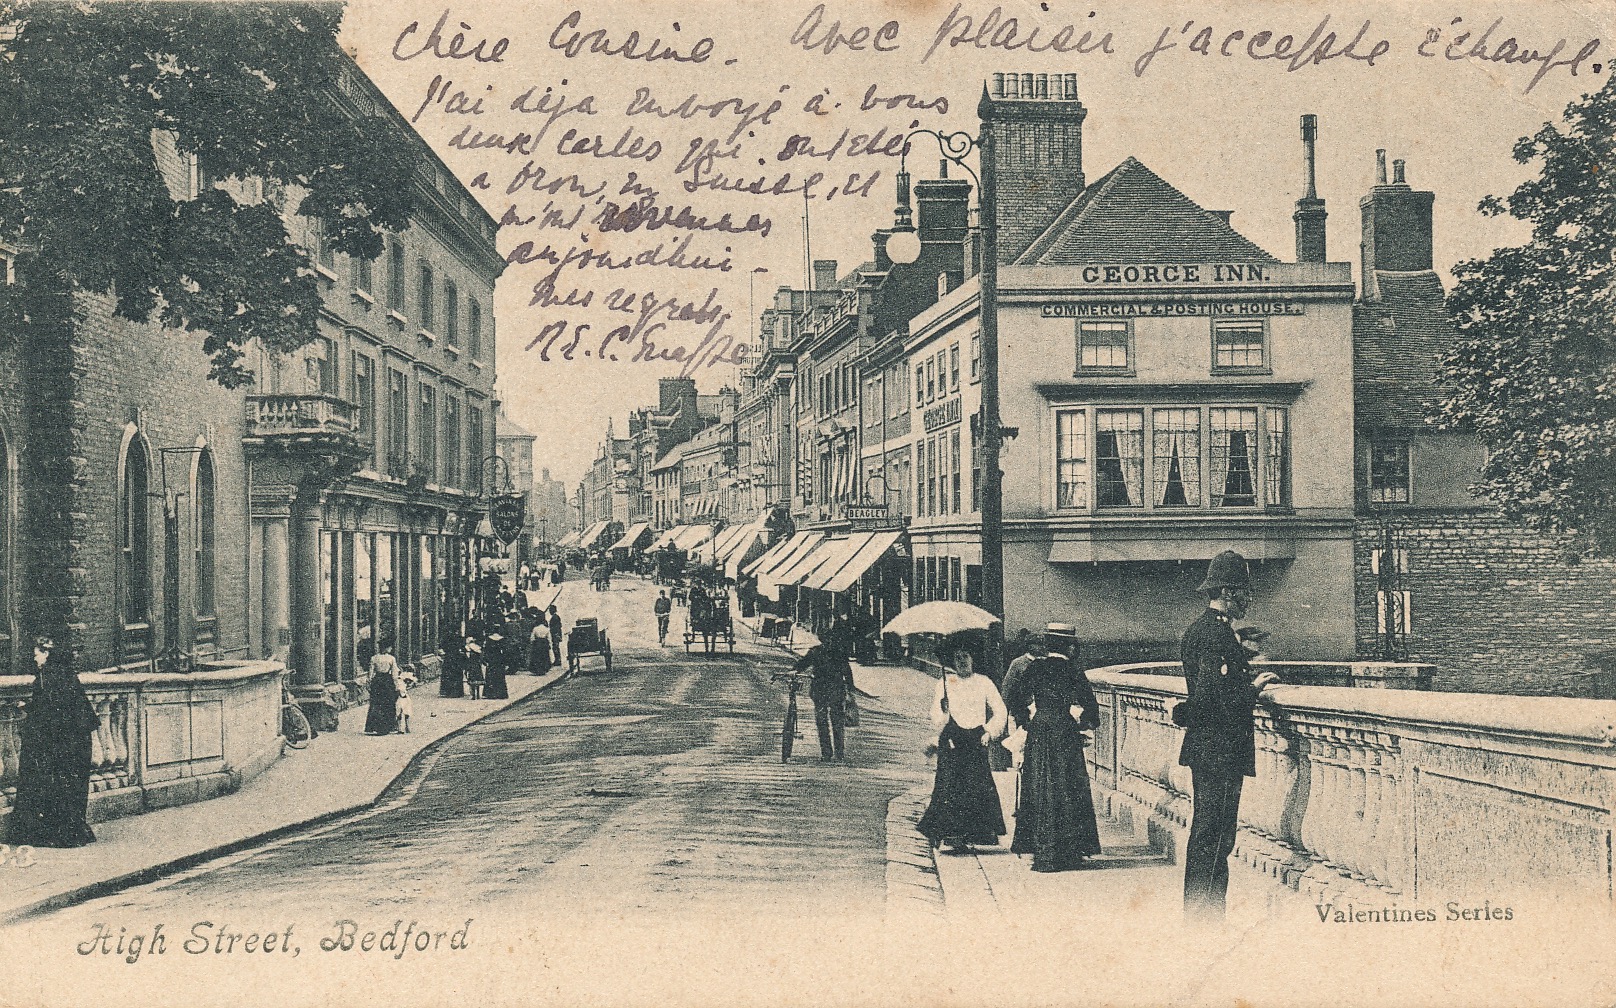 Chère Cousine. Avec plaisir j'accepte échange.
J'ai déja envoyé à vous
deux cartes qui ont été
a Bron, en Suisse, et
m'ont revenues
aujourdhui -
Mes regrets.
GEORGE INN.
COMMERCIAL & POSTING HOUSE.
BEAGLEY
SALONS
High Street, Bedford
Valentines Series